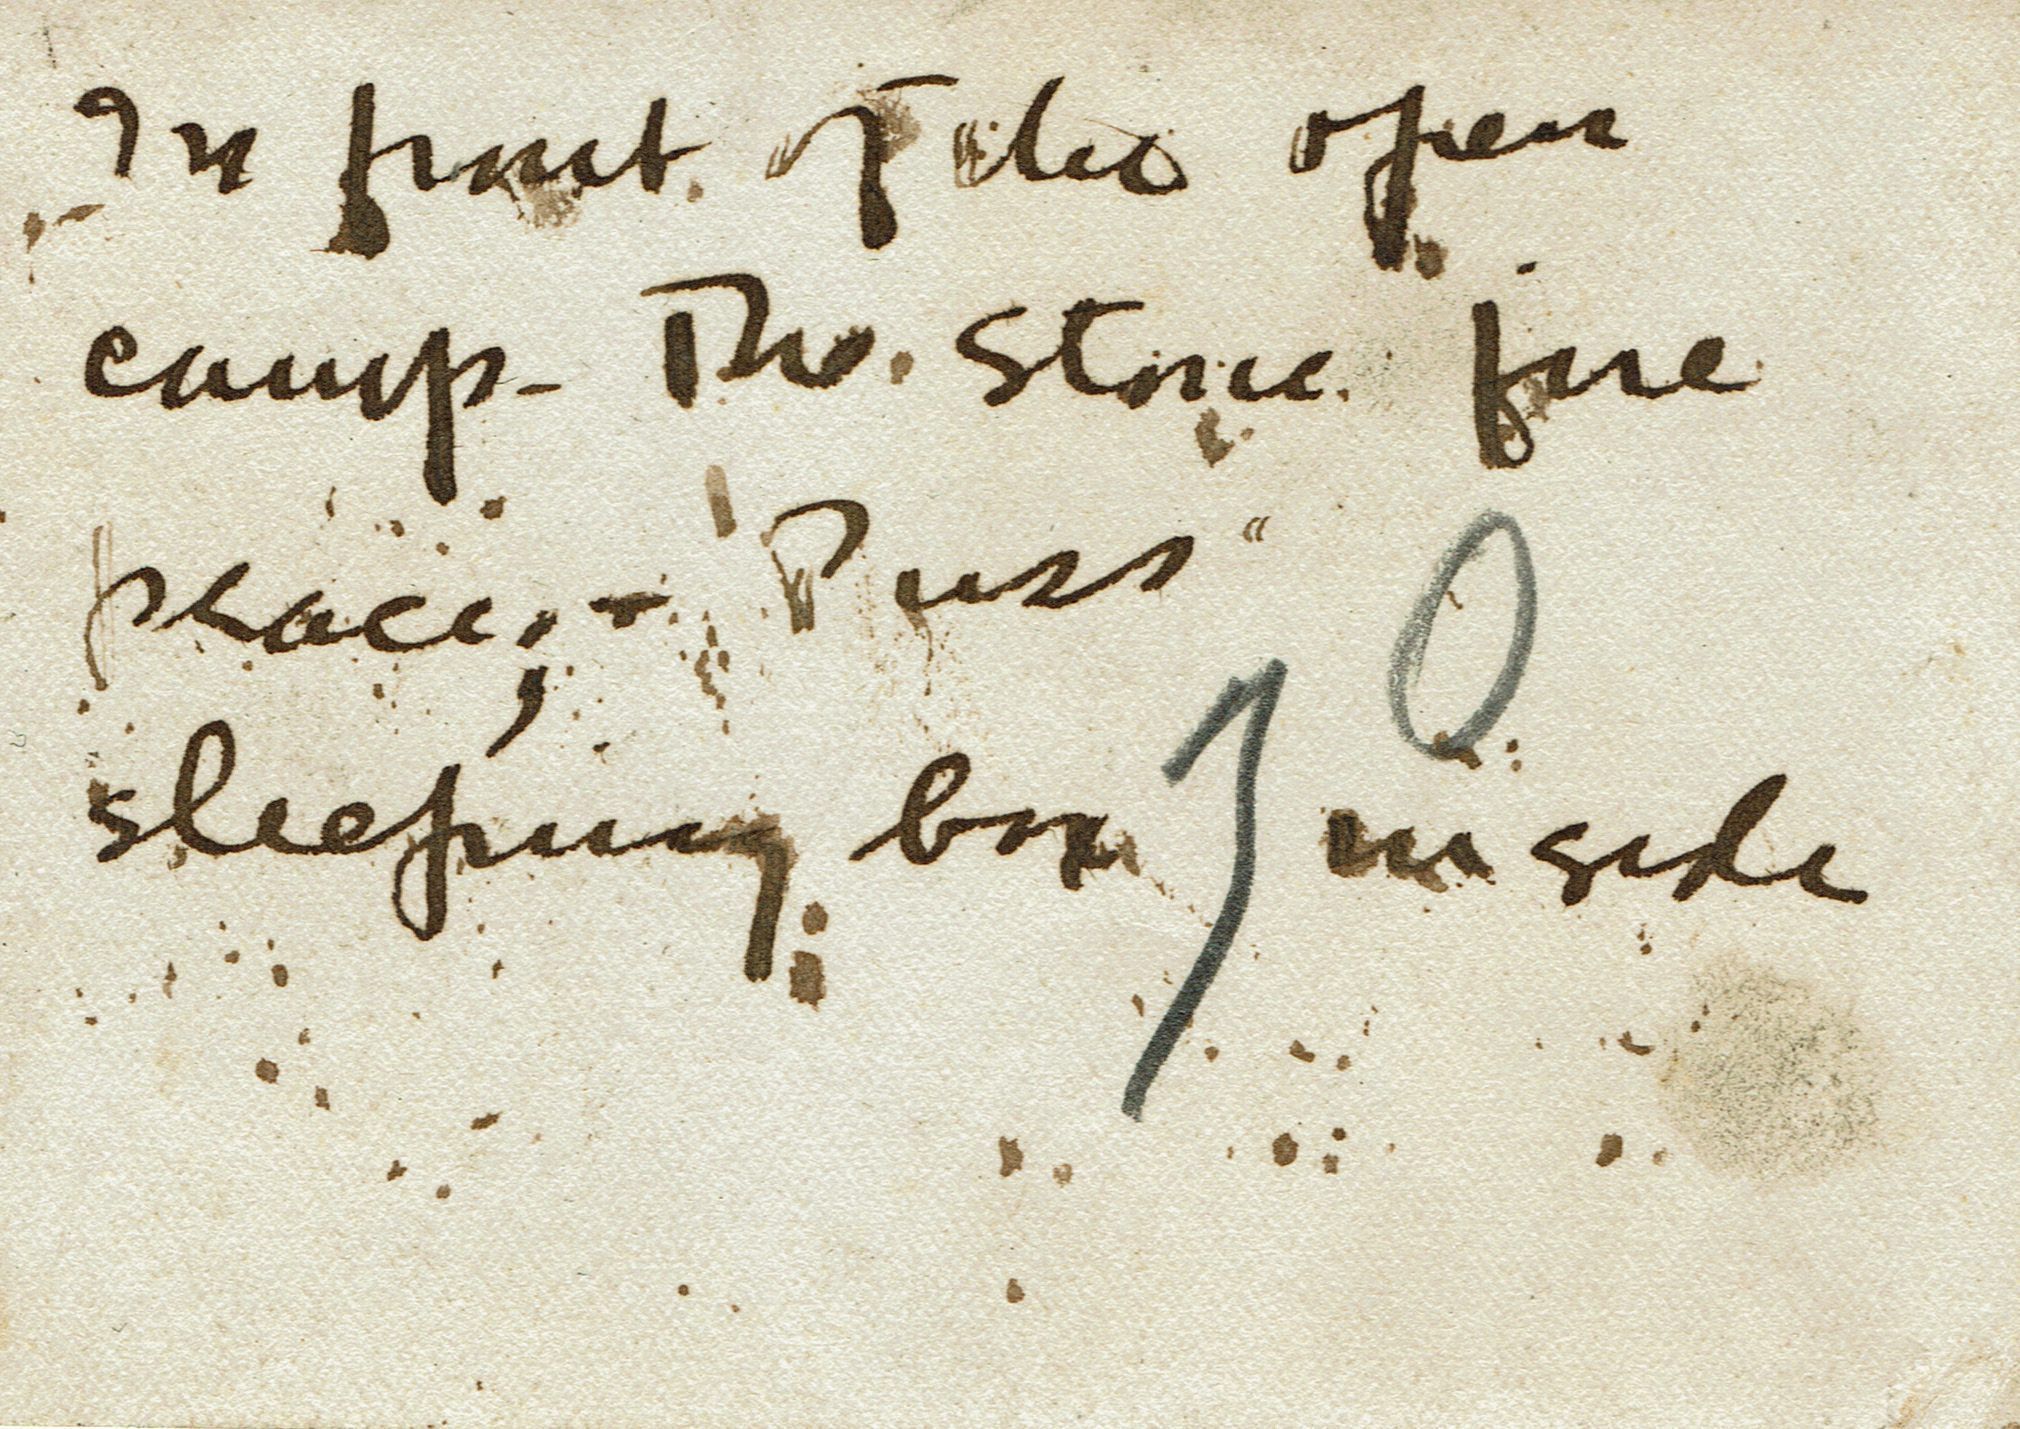 In front of the open
camp - The stone fire
place, - "Puss"
sleeping box inside
10